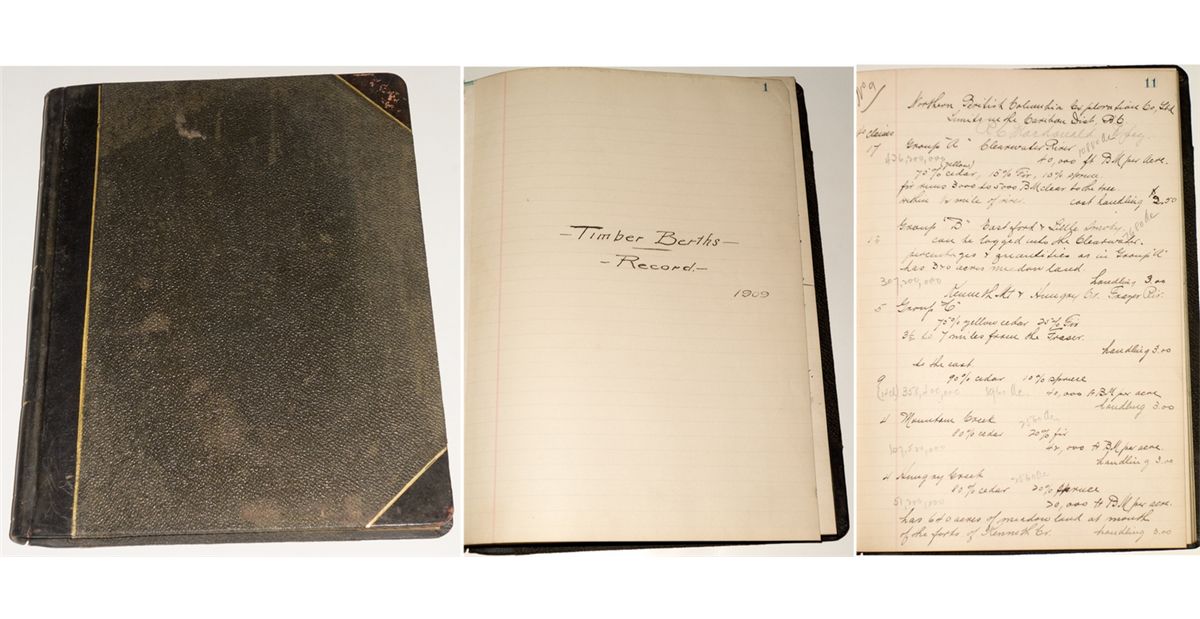 1
-Timber Berths-
-Record.-
1909
11
No 9
Northern British Columbia Exploration Co, Ltd
Limits in the Cariboo Dist, B.C
Macdonald
claims
17 Group "A" Clearwater River
40,000 ft B.M per acre.
(yellow)
75% cedar, 15% Fir, 10% spruce.
fir runs 3000 to 5000 B.M clear to the tree
within ½ mile of river. cost handling $2.50
Group "B" East ford & Little
can be logged into the Clearwater.
percentages & quantities as in Group "A"
has 320 acres meadow land
307,200,000 handling 3.00
Kenneth Mt & Hungry Cr. Frazer Riv.
5 Group "C"
75% yellow cedar 25% Fir
3½ to 7 miles from the Fraser.
handling 3.00
to the east
9 90% cedar 10% spruce
40,000 ft B.M per acre
handling 3.00
4 Mountain Creek
80% cedar 20% fir
42,000 ft B.M per acre
107,520,000
handling 3.00
4 Hungry Creek 2560 Ac
80% cedar 20% spruce
51,200,000 20,000 ft B.M per acre.
has 640 acres of meadow land at mouth
of the forks of Kenneth Cr. handling 3.00